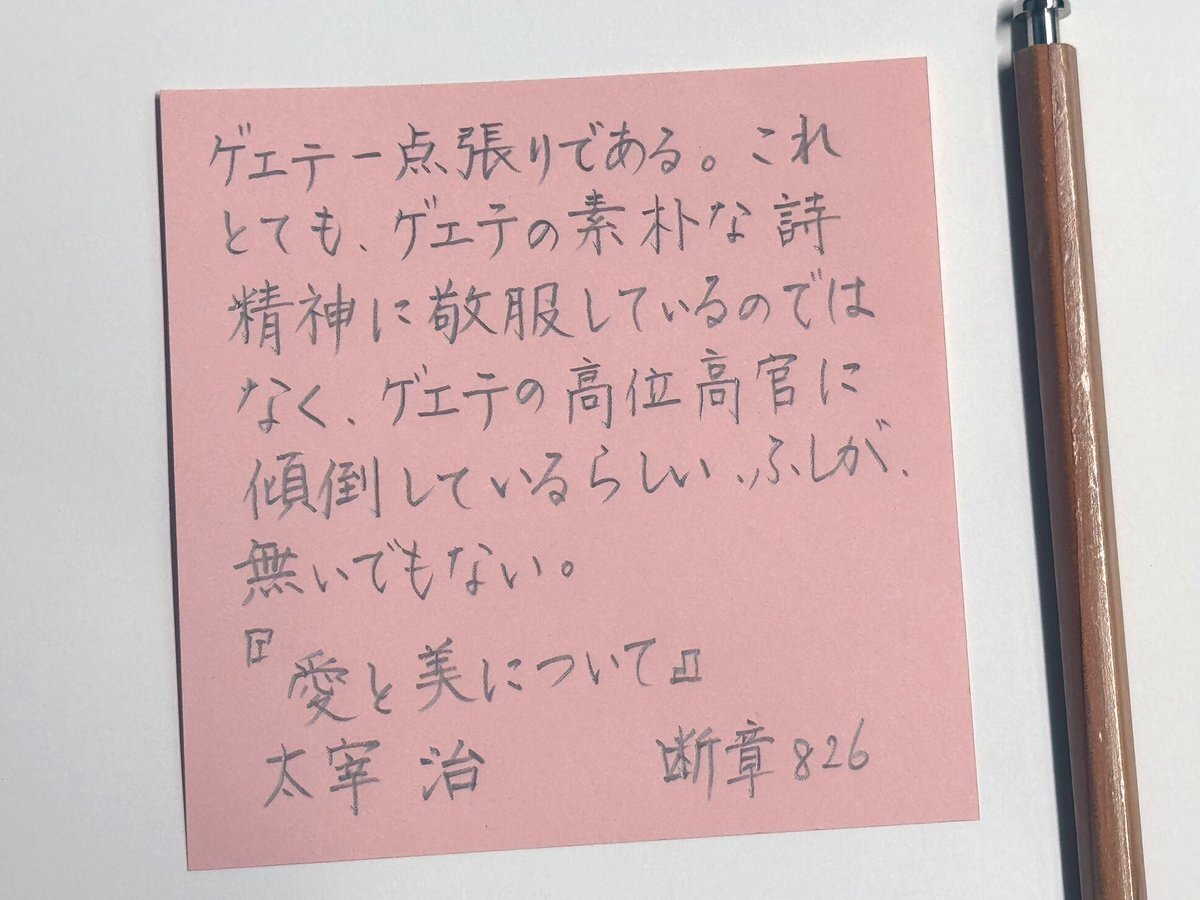 ゲエテ一点張りである。これ
とても、ゲエテの素朴な詩
精神に敬服しているのでは
なく、ゲエテの高位高官に
傾倒しているらしい、ふしが、
無いでもない。
『愛と美について』
太宰 治 断章826